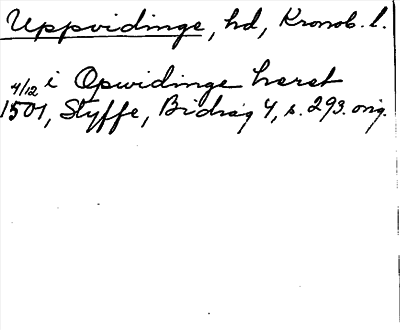 Uppvidinge, hd, Kronob. l.
4/12 i Opwidinge hæret
1501, Styffe, Bidrag 4, s. 293. orig.